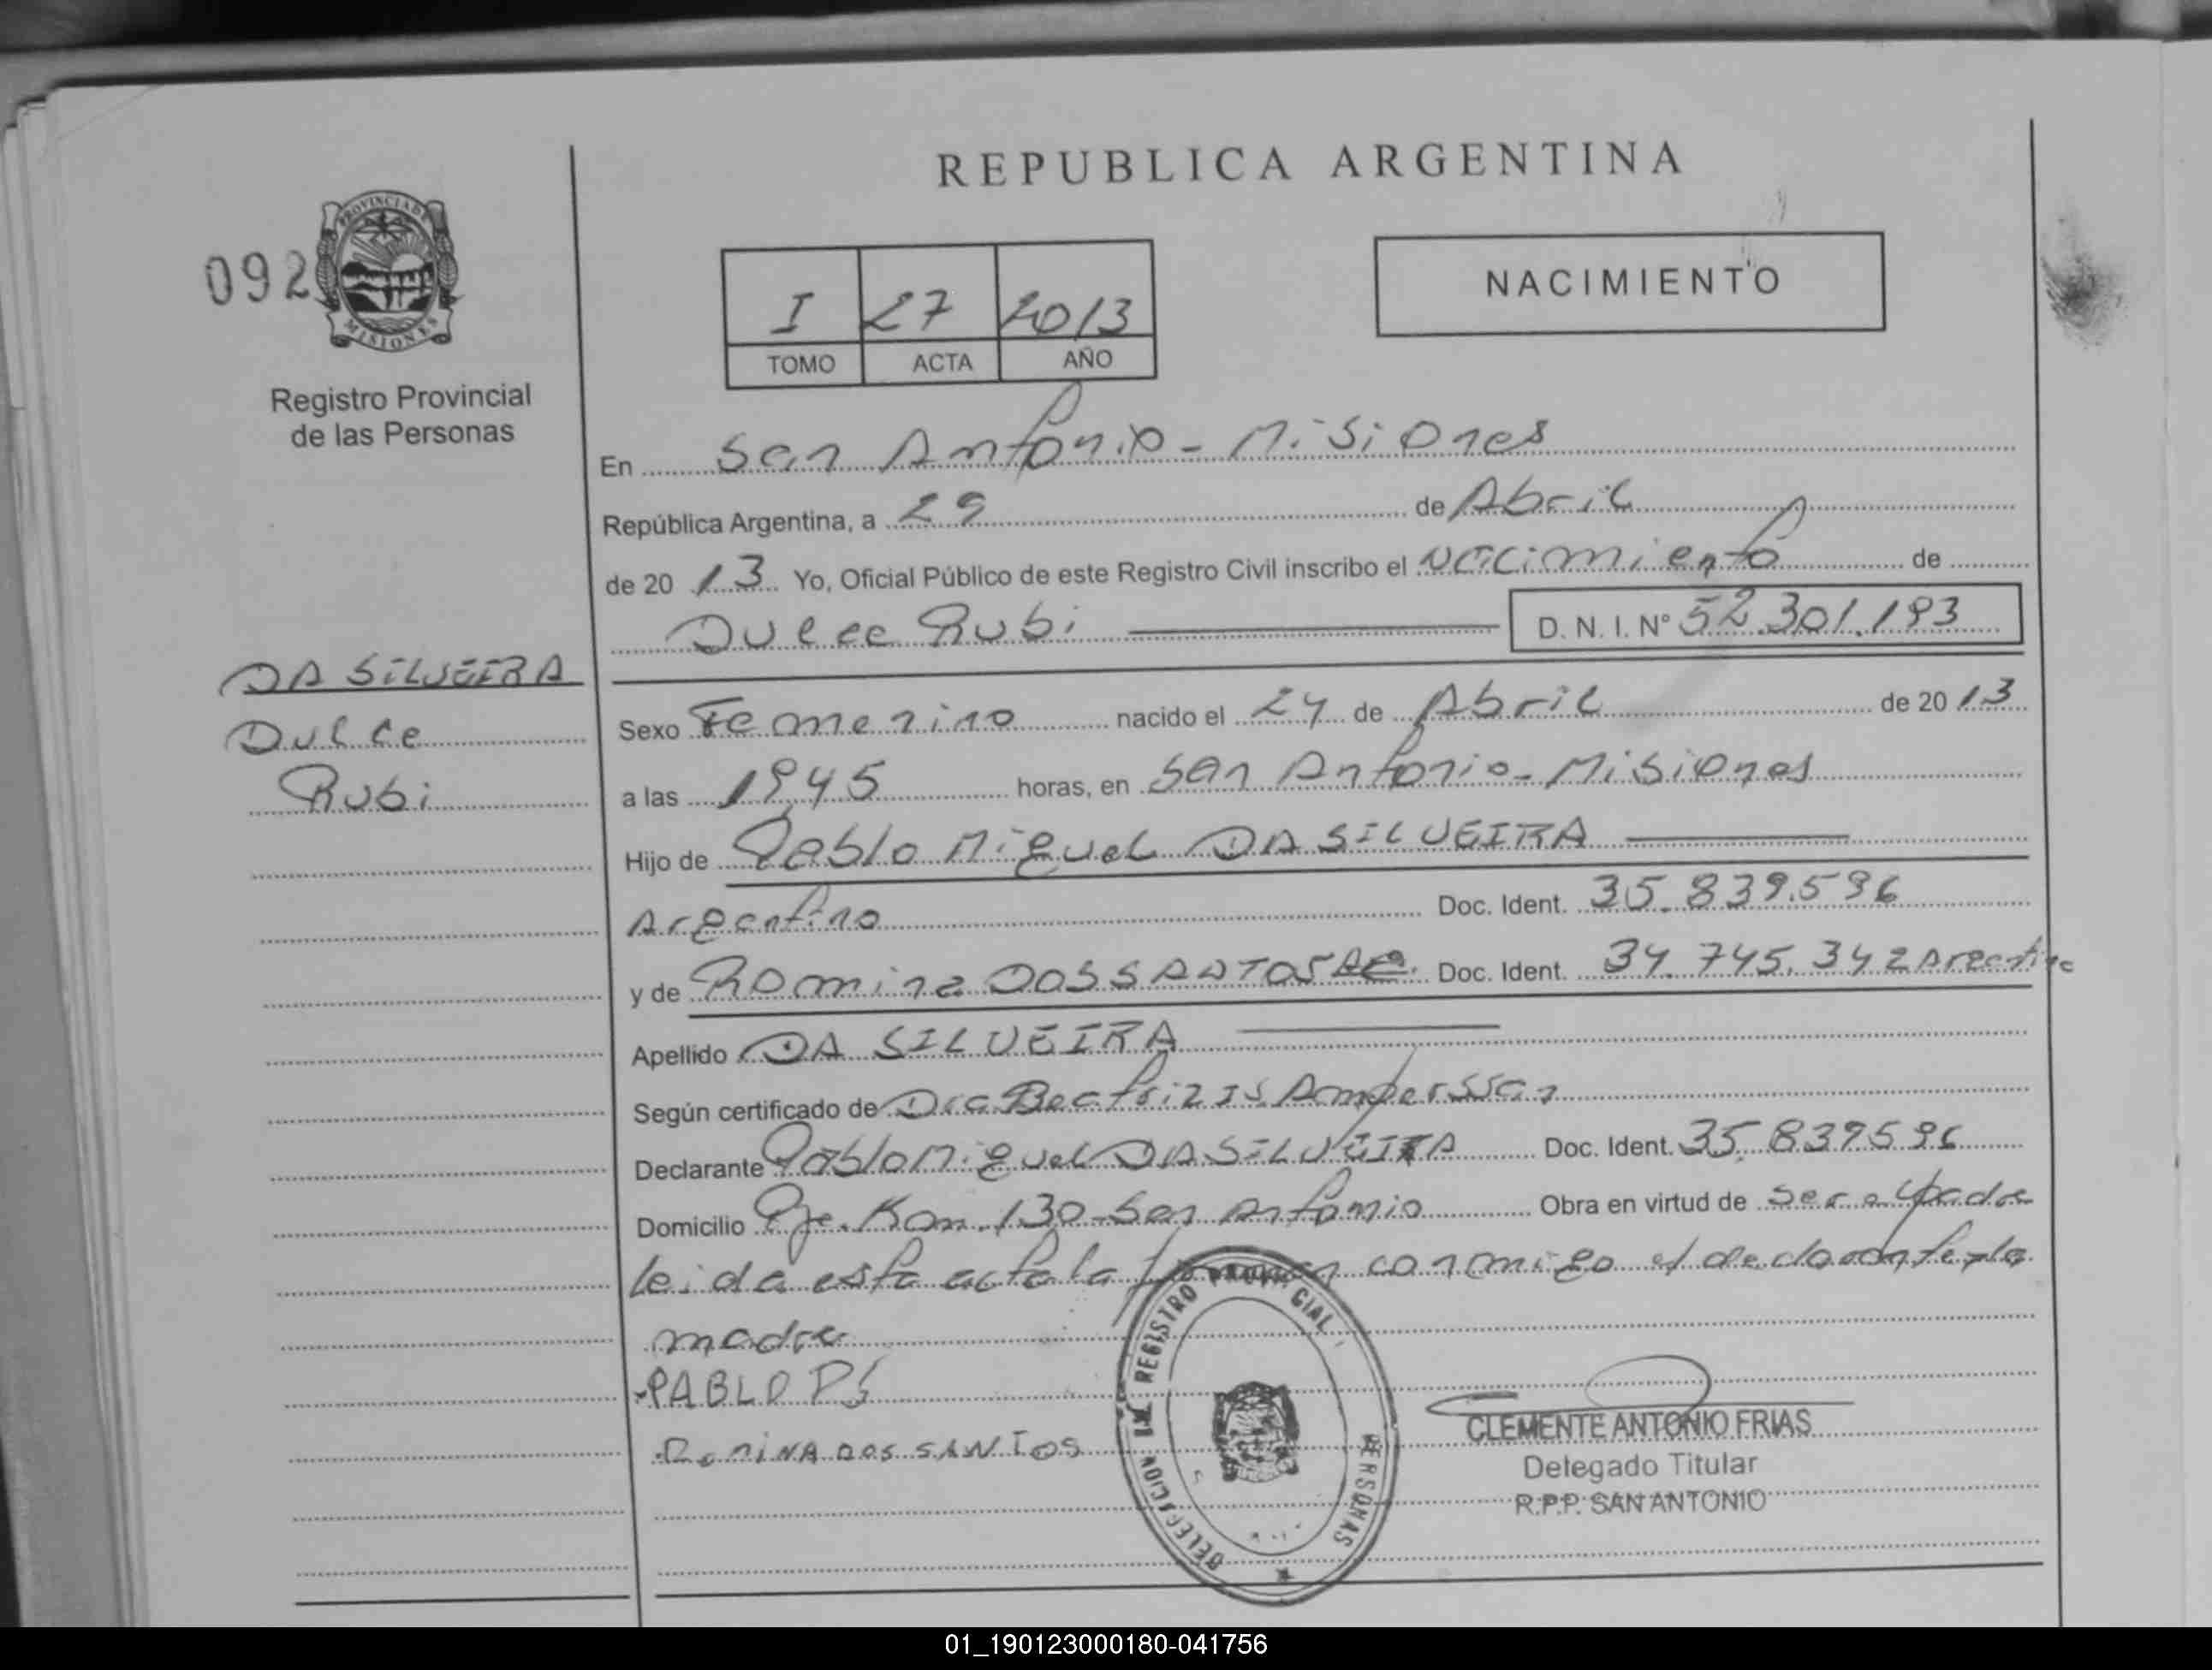 REPUBLICA ARGENTINA
092
PROVINCIA DE MISIONES
Registro Provincial
de las Personas
I 27 2013
TOMO ACTA AÑO
NACIMIENTO
En San Antonio - Misiones
República Argentina, a 29 de Abril
de 20 13 Yo, Oficial Público de este Registro Civil inscribo el nacimiento de
Dulce Rubi D. N. I. Nº 52.301.193
DA SILVEIRA
Dulce
Rubi
Sexo Femenino nacido el 24 de Abril de 20 13
a las 19,45 horas, en San Antonio - Misiones
Hijo de Pablo Miguel DA SILVEIRA
Argentino Doc. Ident. 35.839.596
y de Romina DOS SANTOS Doc. Ident. 34.745.342 Argentina
Apellido DA SILVEIRA
Según certificado de Dra Beatriz
Declarante Pablo Miguel DA SILVEIRA Doc. Ident. 35.839596
Domicilio Pje. Km. 130 - San Antonio Obra en virtud de ser el padre
leida esta acta la firman conmigo el declarante y la
madre
PABLO
ROMINA DOS SANTOS
DELEGACION REGISTRO PROVINCIAL PERSONAS
CLEMENTE ANTONIO FRIAS
Delegado Titular
R.P.P. SAN ANTONIO
01_190123000180-041756